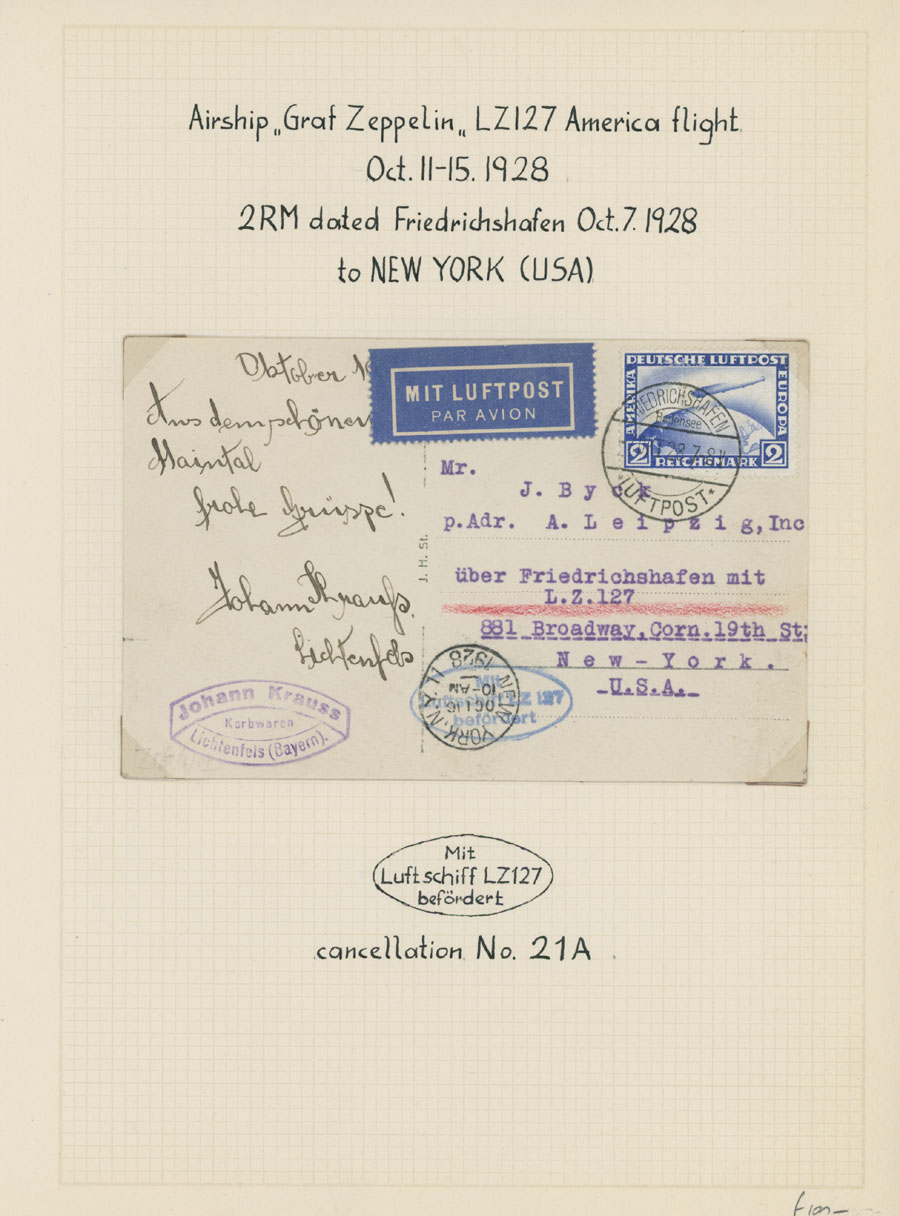 Airship „Graf Zeppelin„ LZ127 America flight
Oct. 11-15. 1928
2RM dated Friedrichshafen Oct. 7. 1928
to NEW YORK (USA)
Oktober
Aus dem schönen
Maintal
frohe Grüsse!
Johann Krauss.
Lichtenfels
MIT LUFTPOST
PAR AVION
DEUTSCHE LUFTPOST
AMERIKA
EUROPA
2 REICHSMARK 2
FRIEDRICHSHAFEN
Bodensee
LUFTPOST
Mr.
J. Byck
p.Adr. A. Leipzig, Inc
über Friedrichshafen mit
L.Z.127
881 Broadway, Corn.19th St:
New-York.
-U.S.A.-
J. H. St.
NEW YORK, N.Y.
OCT 16
10-AM
1928
Mit
Luftschiff LZ 127
befördert
Johann Krauss
Korbwaren
Lichtenfels (Bayern).
Mit
Luftschiff LZ127
befördert
cancellation No. 21A